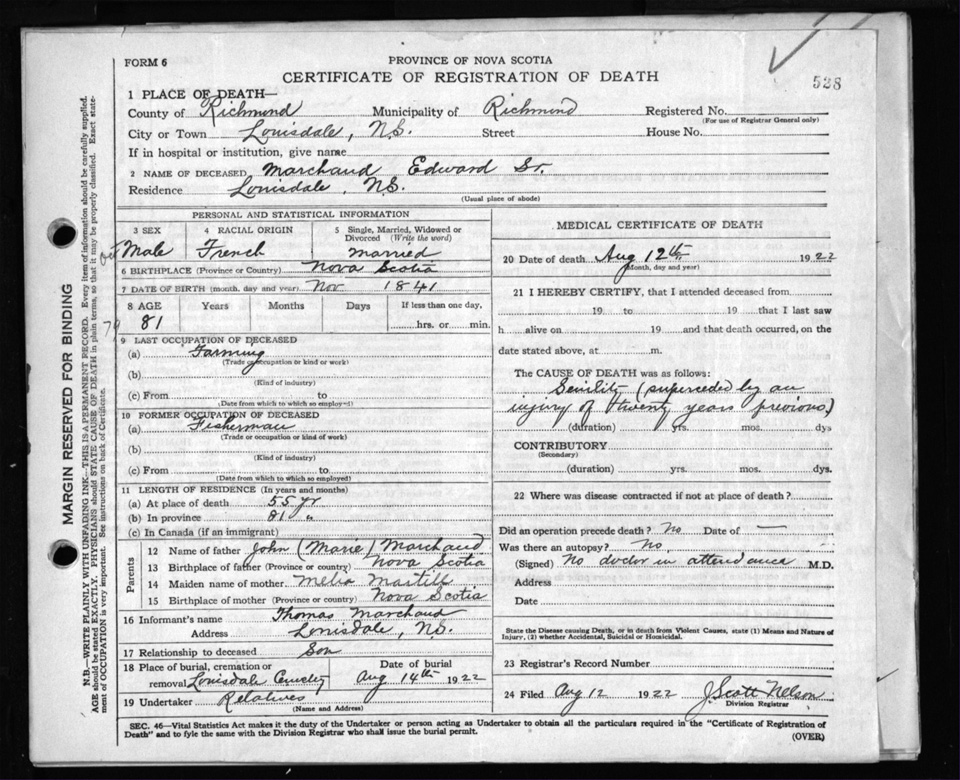 528
FORM 6
PROVINCE OF NOVA SCOTIA
CERTIFICATE OF REGISTRATION OF DEATH
1 PLACE OF DEATH—
County of Richmond Municipality of Richmond Registered No.
(For use of Registrar General only)
City or Town Louisdale, N.S. Street House No.
If in hospital or institution, give name
2 NAME OF DECEASED Marchand Edward Sr.
Residence Louisdale, N.S.
(Usual place of abode)
PERSONAL AND STATISTICAL INFORMATION
3 SEX 4 RACIAL ORIGIN 5 Single, Married, Widowed or Divorced (Write the word)
Male French Married
6 BIRTHPLACE (Province or Country) Nova Scotia
7 DATE OF BIRTH (month, day and year) Nov 1841
8 AGE Years Months Days If less than one day,
81 hrs. or min.
79
9 LAST OCCUPATION OF DECEASED
(a) Farming
(Trade or occupation or kind or work)
(b)
(Kind of industry)
(c) From to
(Date from which to which so employed)
10 FORMER OCCUPATION OF DECEASED
(a) Fisherman
(Trade or occupation or kind of work)
(b)
(Kind of industry)
(c) From to
(Date from which to which so employed)
11 LENGTH OF RESIDENCE (In years and months)
(a) At place of death 55 yr
(b) In province 81 "
(c) In Canada (if an immigrant)
Parents
12 Name of father John (Marie) Marchand
13 Birthplace of father (Province or country) Nova Scotia
14 Maiden name of mother Melia Martell
15 Birthplace of mother (Province or Country) Nova Scotia
16 Informant's name Thomas Marchand
Address Louisdale, NS.
17 Relationship to deceased Son
18 Place of burial, cremation or Date of burial
removal Louisdale Aug 14th 1922
19 Undertaker Relatives
(Name and Address)
MEDICAL CERTIFICATE OF DEATH
20 Date of death Aug 12th 1922
(Month, day and year)
21 I HEREBY CERTIFY, that I attended deceased from
19 to 19 that I last saw
h alive on 19 and that death occurred, on the
date stated above, at m.
The CAUSE OF DEATH was as follows:
Senility (superceded by an
injury of twenty years previous.)
(duration) yrs. mos. dys
CONTRIBUTORY
(Secondary)
(duration) yrs. mos. dys.
22 Where was disease contracted if not at place of death?
Did an operation precede death? No Date of —
Was there an autopsy? No
(Signed) No doctor in attendance M.D.
Address
Date
State the Disease causing Death, or in death from Violent Causes, state (1) Means and Nature of
Injury, (2) whether Accidental, Suicidal or Homicidal.
23 Registrar's Record Number
24 Filed Aug 12 1922 J. Scott Nelson
Division Registrar
SEC. 46—Vital Statistics Act makes it the duty of the Undertaker or person acting as Undertaker to obtain all the particulars required in the "Certificate of Registration of
Death" and to fyle the same with the Division Registrar who shall issue the burial permit.
(OVER)
MARGIN RESERVED FOR BINDING
N.B.—WRITE PLAINLY WITH UNFADING INK—THIS IS A PERMANENT RECORD. Every item of information should be carefully supplied.
AGE should be stated EXACTLY. PHYSICIANS should STATE CAUSE OF DEATH in plain terms, so that it may be properly classified. Exact state-
ment of OCCUPATION is very important. See instructions on back of Certificate.